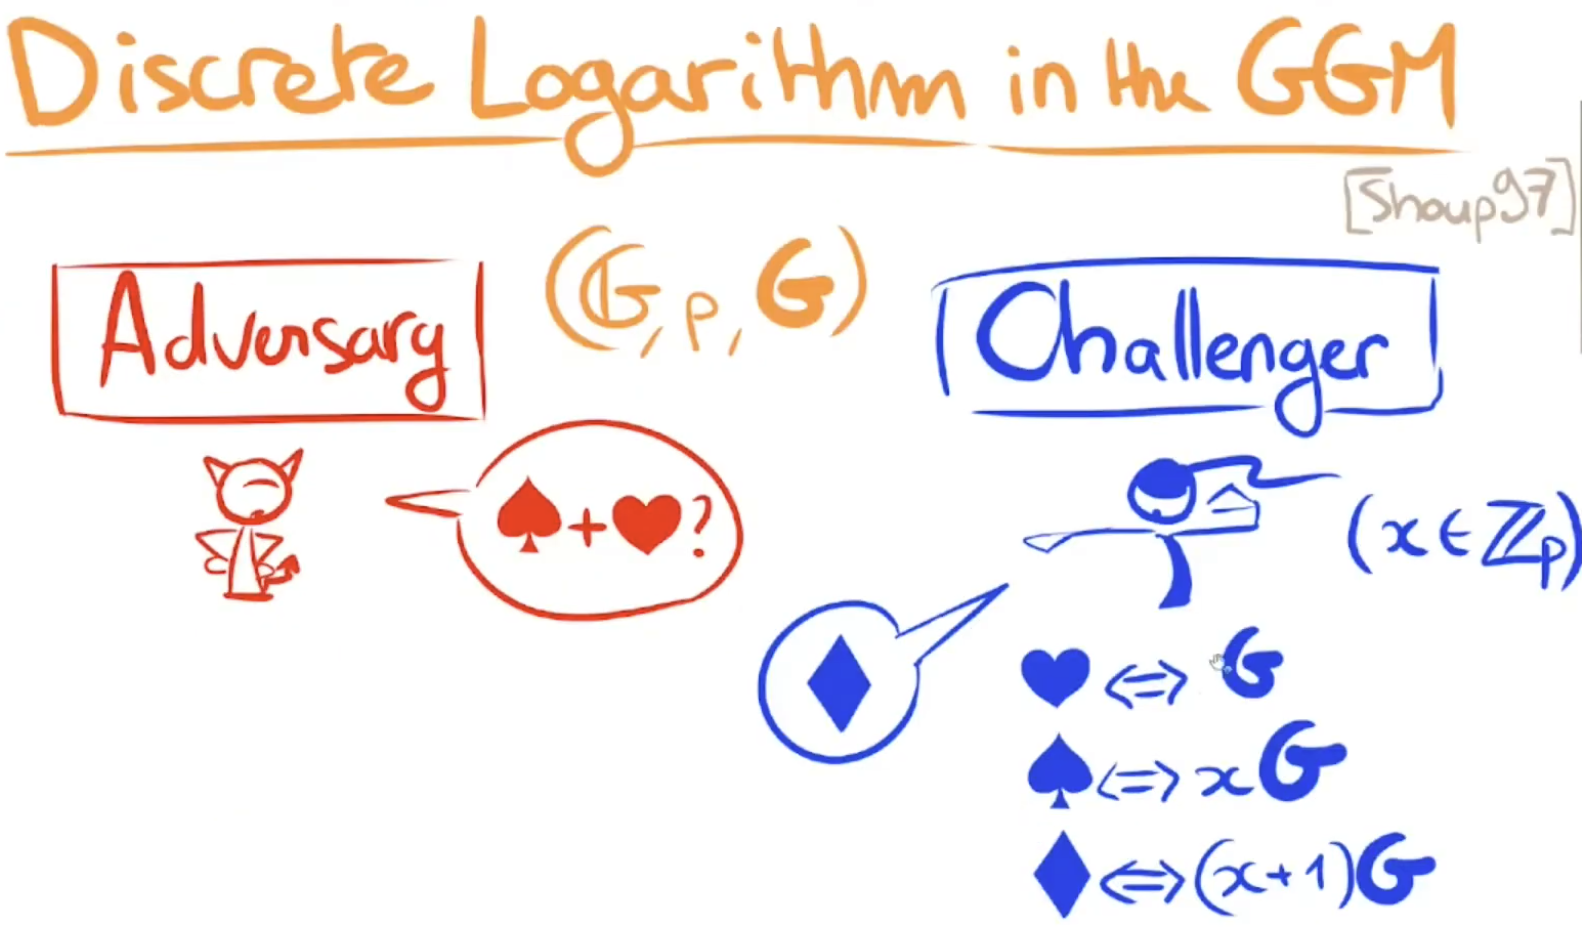 Discrete Logarithm in the GGM
[Shoup97]
Adversary
(𝔾, p, G)
Challenger
♠+♥?
(x ∈ ℤp)
♦
♥ <=> G
♠ <=> xG
♦ <=> (x+1)G